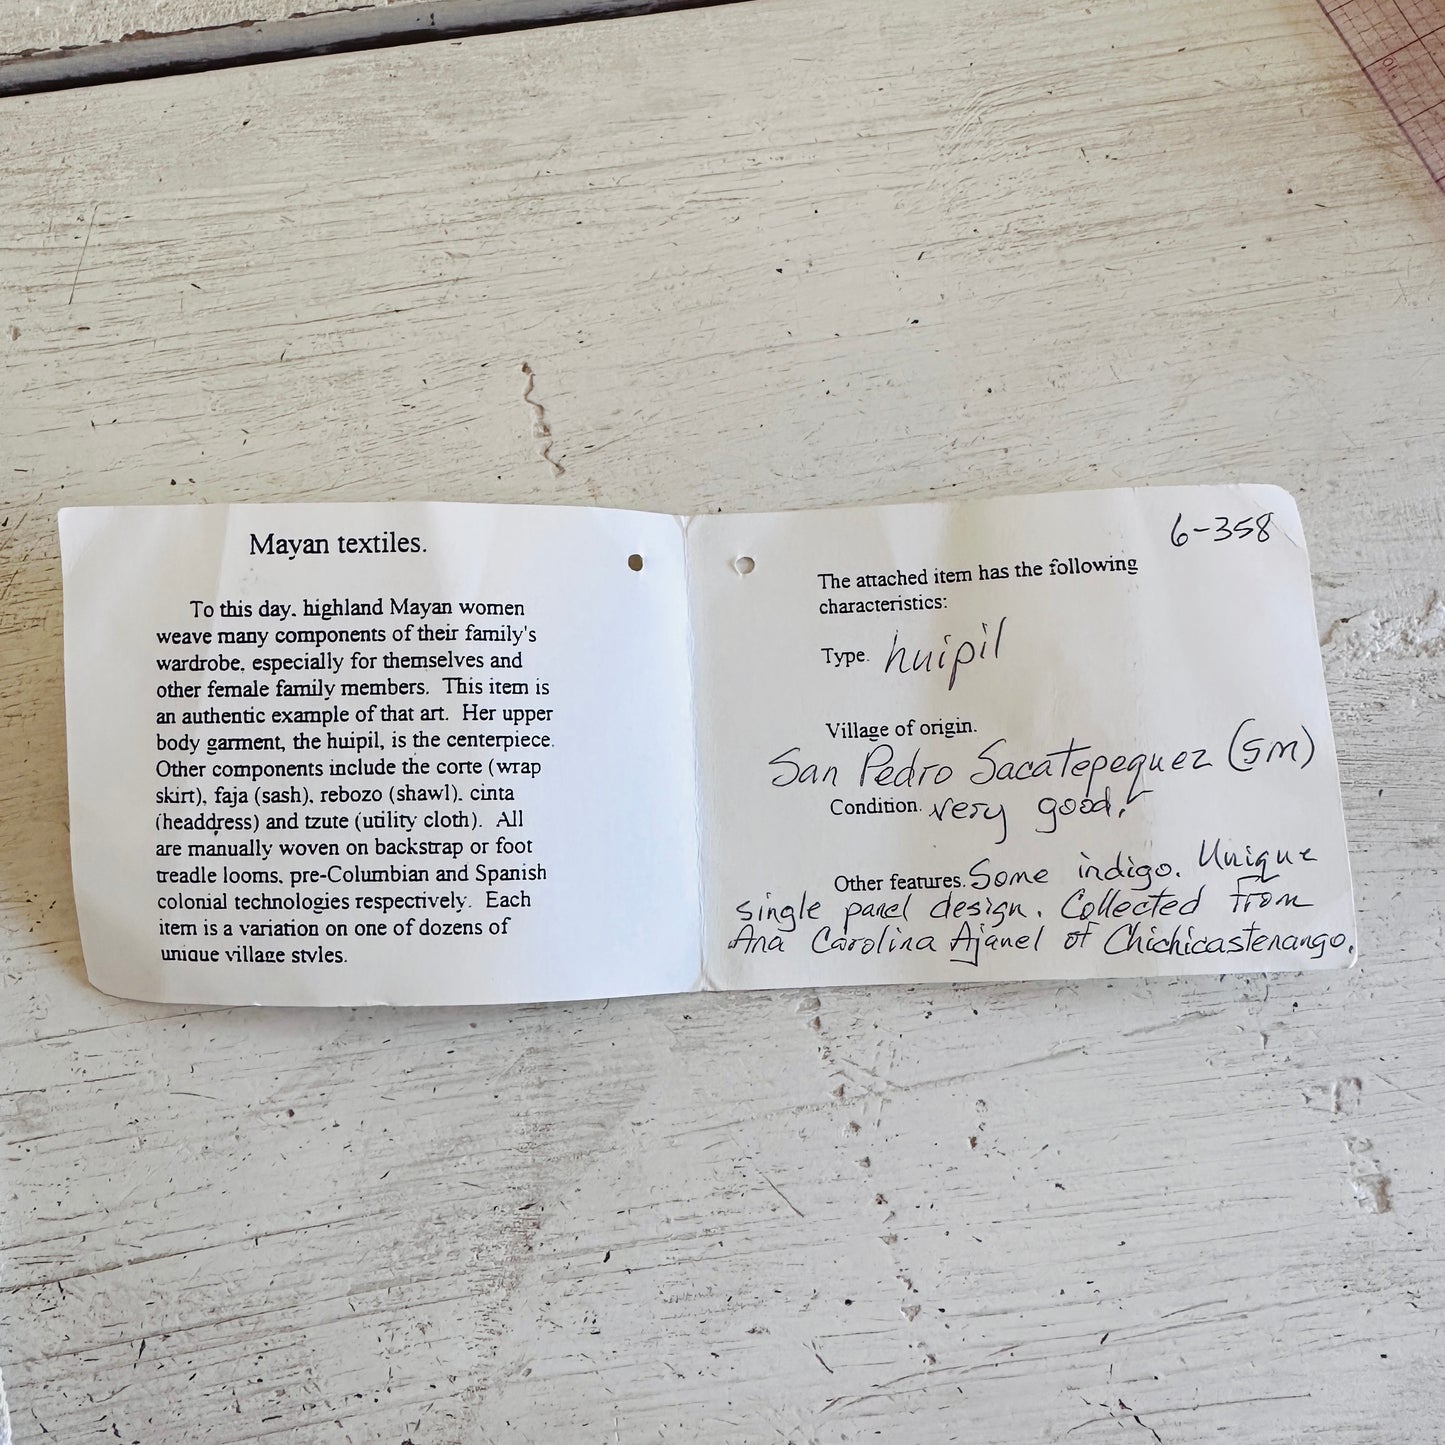 Mayan textiles.
To this day, highland Mayan women
weave many components of their family's
wardrobe, especially for themselves and
other female family members. This item is
an authentic example of that art. Her upper
body garment, the huipil, is the centerpiece.
Other components include the corte (wrap
skirt), faja (sash), rebozo (shawl), cinta
(headdress) and tzute (utility cloth). All
are manually woven on backstrap or foot
treadle looms, pre-Columbian and Spanish
colonial technologies respectively. Each
item is a variation on one of dozens of
unique village styles.
6-358
The attached item has the following
characteristics:
Type. huipil
Village of origin.
San Pedro Sacatepequez (SM)
Condition. very good.
Other features. Some indigo. Unique
single panel design. Collected from
Ana Carolina Ajanel of Chichicastenango.
10